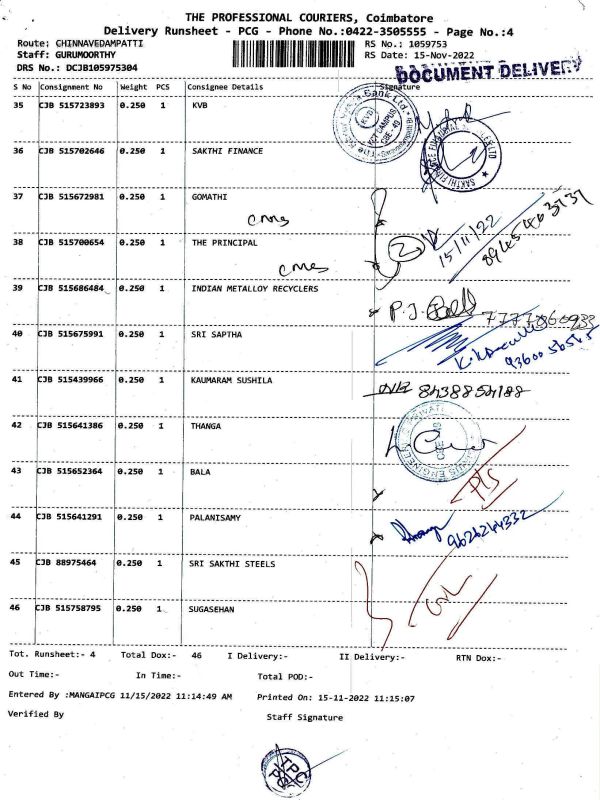 THE PROFESSIONAL COURIERS, Coimbatore
Delivery Runsheet - PCG - Phone No.:0422-3505555 - Page No.:4
Route: CHINNAVEDAMPATTI RS No.: 1059753
Staff: GURUMOORTHY RS Date: 15-Nov-2022
DRS No.: DCJB105975304
DOCUMENT DELIVERY
S No Consignment No Weight PCS Consignee Details Signature
35 CJB 515723893 0.250 1 KVB
36 CJB 515702646 0.250 1 SAKTHI FINANCE
37 CJB 515672981 0.250 1 GOMATHI
15/11/22
38 CJB 515700654 0.250 1 THE PRINCIPAL
2
39 CJB 515686484 0.250 1 INDIAN METALLOY RECYCLERS
40 CJB 515675991 0.250 1 SRI SAPTHA
41 CJB 515439966 0.250 1 KAUMARAM SUSHILA
42 CJB 515641386 0.250 1 THANGA
43 CJB 515652364 0.250 1 BALA
44 CJB 515641291 0.250 1 PALANISAMY
9626264332
45 CJB 88975464 0.250 1 SRI SAKTHI STEELS
46 CJB 515758795 0.250 1 SUGASEHAN
Tot. Runsheet:- 4 Total Dox:- 46 I Delivery:- II Delivery:- RTN Dox:-
Out Time:- In Time:- Total POD:-
Entered By :MANGAIPCG 11/15/2022 11:14:49 AM Printed On: 15-11-2022 11:15:07
Verified By Staff Signature
TPC